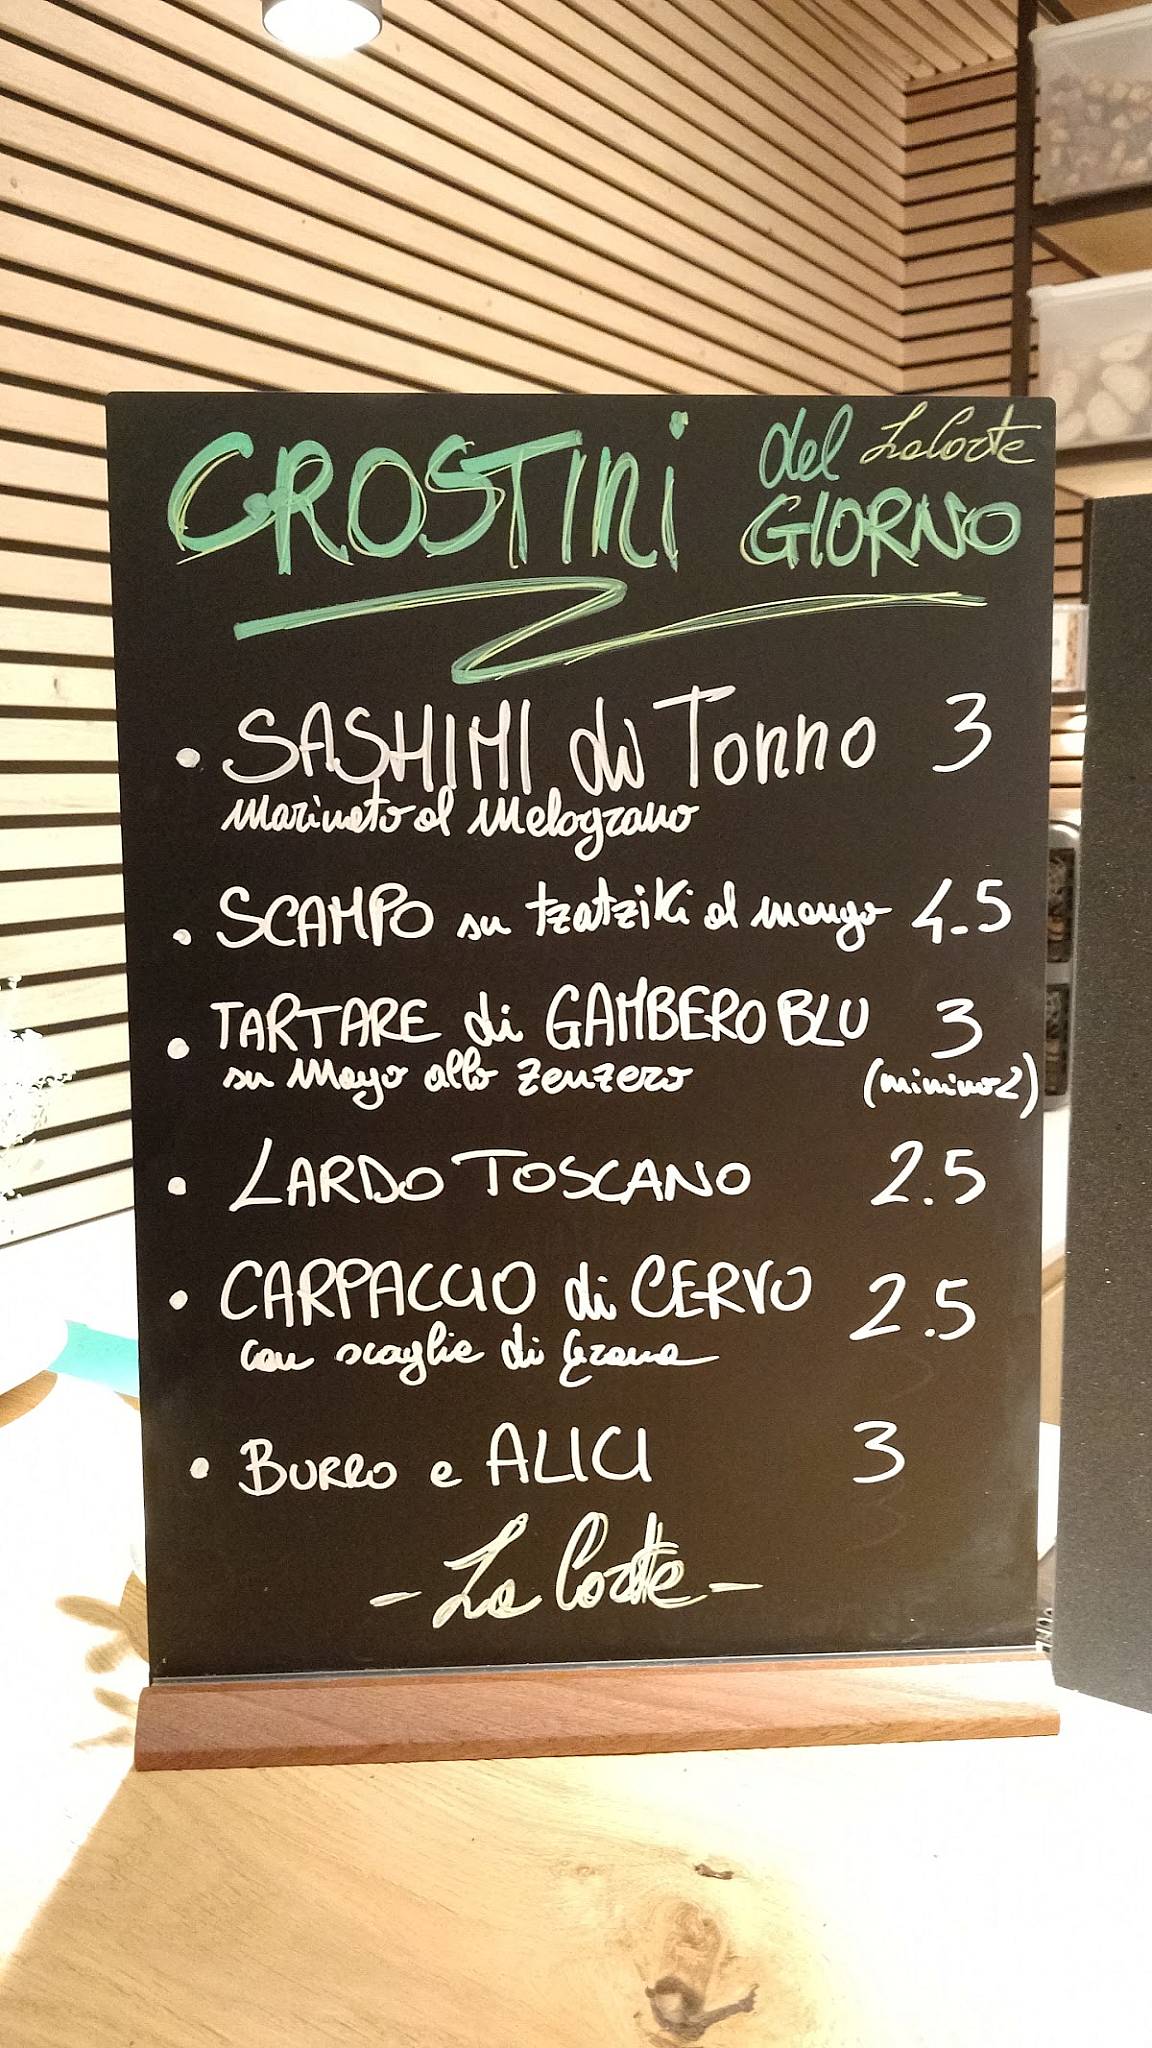 CROSTINI del LaCorte
GIORNO
• SASHIMI di Tonno 3
Marinato al Melograno
• SCAMPO su tzatziki al mango 4.5
• TARTARE di GAMBERO BLU 3
su Mayo allo zenzero (minimo2)
• LARDO TOSCANO 2.5
• CARPACCIO di CERVO 2.5
con scaglie di Grana
• BURRO e ALICI 3
- La Corte -